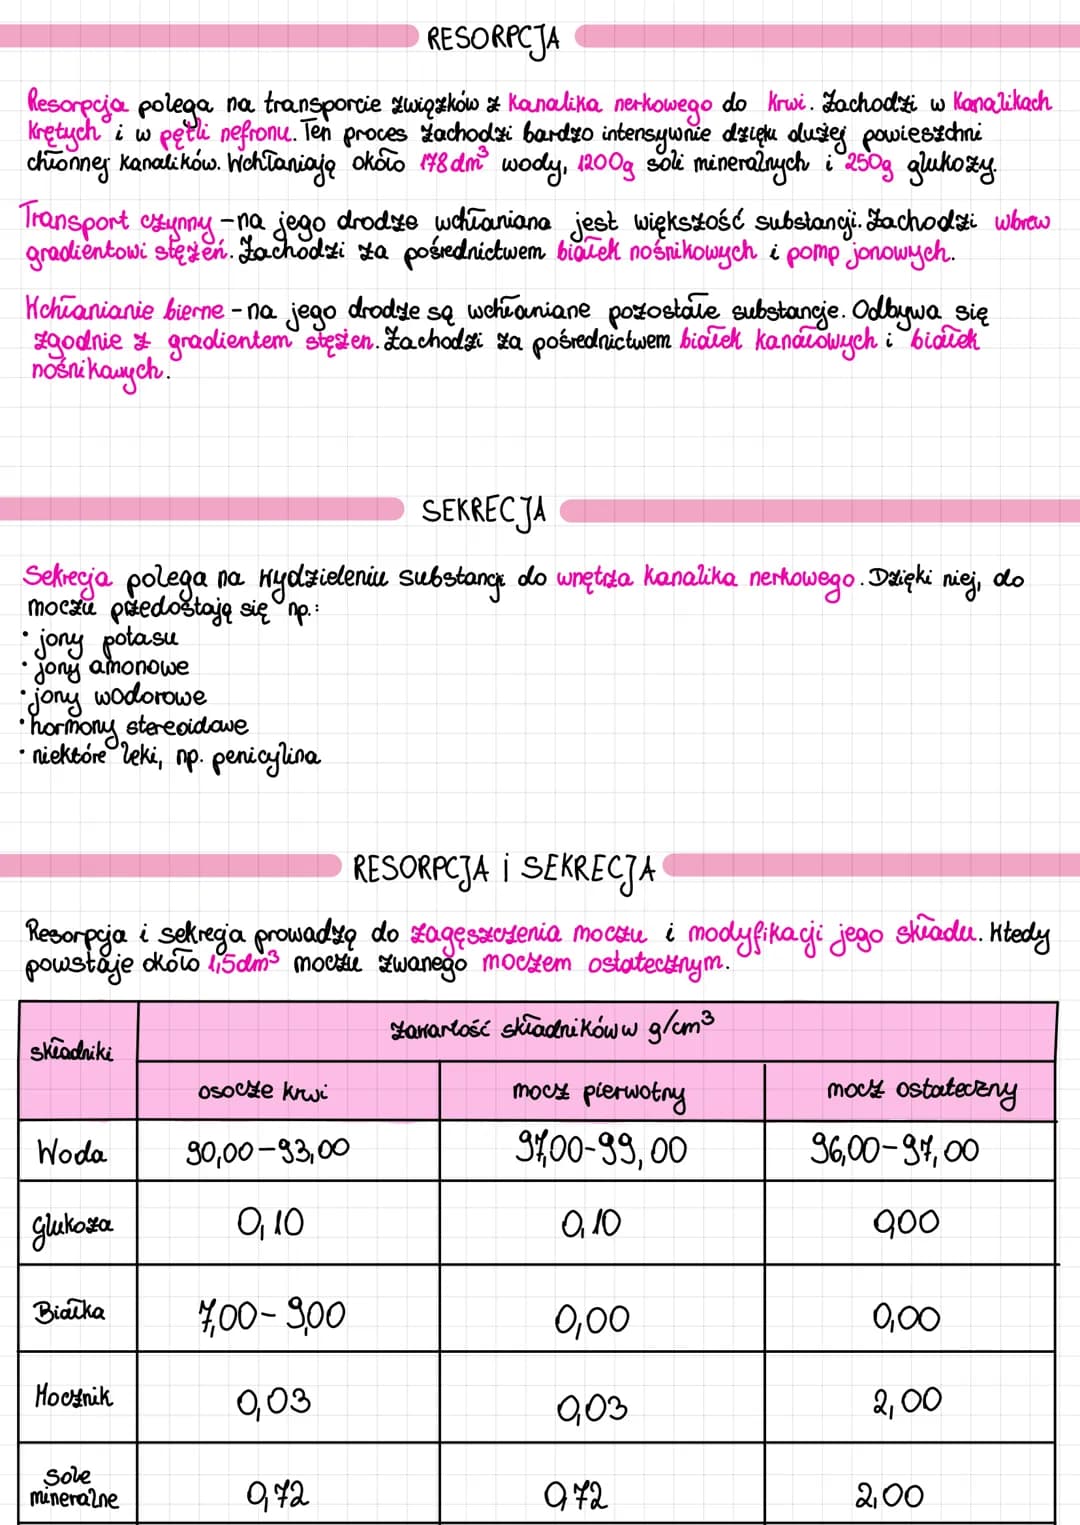 RESORPCJA
Resorpcja polega na transporcie związków z kanalika nerkowego do krwi. Zachodzi w kanalikach
krętych i w pętli nefronu. Ten proces zachodzi bardzo intensywnie dzięku dużej powieszchni
chłonnej kanalików. Wchłaniają około 178 dm³ wody, 1200g soli mineralnych i 250g glukozy.
Transport czynny - na jego drodze wchłaniana jest większość substancji. Zachodzi wbrew
gradientowi stężeń. Zachodzi za pośrednictwem białek nośnikowych i pomp jonowych.
Wchłanianie bierne - na jego drodze są wchłaniane pozostałe substancje. Odbywa się
zgodnie z gradientem stężen. Zachodzi za pośrednictwem białek kanałowych i białek
nośnikowych.
SEKRECJA
Sekrecja polega na wydzieleniu substancji do wnętrza kanalika nerkowego. Dzięki niej, do
moczu przedostają się np.:
• jony potasu
• jony amonowe
• jony wodorowe
• hormony stereoidowe
• niektóre leki, np. penicylina
RESORPCJA i SEKRECJA
Resorpcja i sekrecja prowadzą do zagęszczenia moczu i modyfikacji jego składu. Wtedy
powstaje około 1,5dm³ moczu zwanego moczem ostatecznym.
składniki
zawartość składników w g/cm³
osocze krwi
mocz pierwotny
mocz ostateczny
Woda
90,00-93,00
97,00-99,00
96,00-97,00
glukoza
0,10
0,10
0,00
Białka
7,00-9,00
0,00
0,00
Mocznik
0,03
0,03
2,00
Sole
mineralne
0,72
0,72
2,00